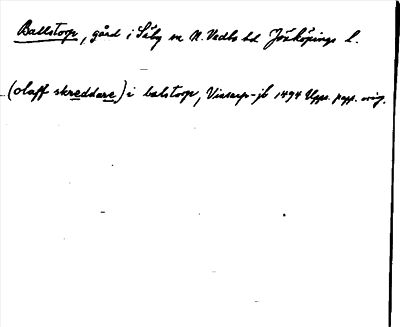 Ballstorp, gård i Säby sn N. Vedbo hd Jönköpings l.
(olaff skreddare) i balstorp, Vinsarp-jb 1494 Upps. papp. orig.